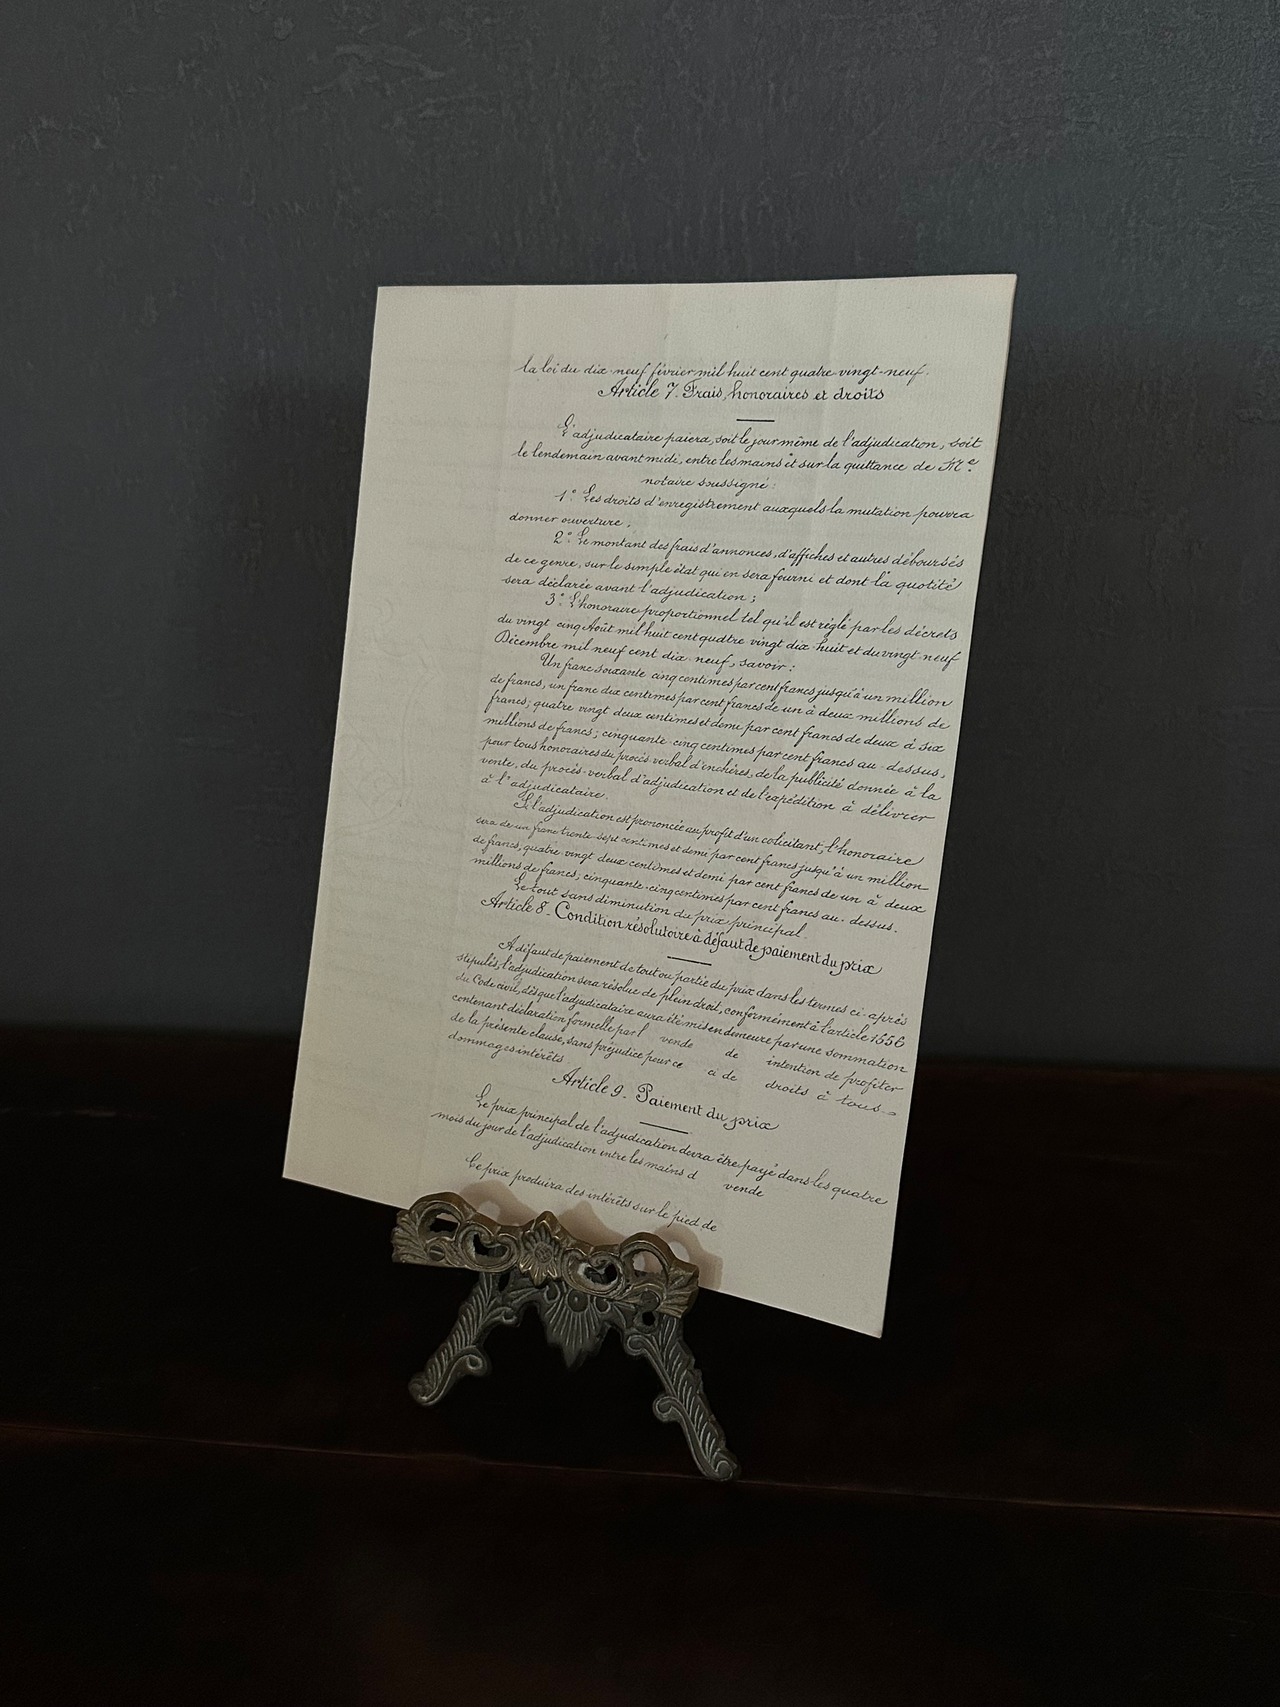 la loi du dix-neuf février mil huit cent quatre vingt-neuf.
Article 7. Frais, honoraires et droits
L'adjudicataire paiera, soit le jour même de l'adjudication, soit
le lendemain avant midi, entre les mains et sur la quittance de Me
notaire soussigné:
1° Les droits d'enregistrement auxquels la mutation pourra
donner ouverture.
2° Le montant des frais d'annonces, d'affiches et autres déboursés
de ce genre, sur le simple état qui en sera fourni et dont la quotité
sera déclarée avant l'adjudication;
3° L'honoraire proportionnel tel qu'il est réglé par les décrets
du vingt cinq Août mil huit cent quatre vingt dix-huit et du vingt-neuf
Décembre mil neuf cent dix-neuf, savoir:
Un franc soixante cinq centimes par cent francs jusqu'à un million
de francs, un franc dix centimes par cent francs de un à deux millions de
francs; quatre vingt deux centimes et demi par cent francs de deux à six
millions de francs; cinquante-cinq centimes par cent francs au-dessus,
pour tous honoraires du procès verbal d'enchères, de la publicité donnée à la
vente, du procès-verbal d'adjudication et de l'expédition à délivrer
à l'adjudicataire.
Si l'adjudication est prononcée au profit d'un colicitant, l'honoraire
sera de un franc trente-sept centimes et demi par cent francs jusqu'à un million
de francs, quatre-vingt deux centimes et demi par cent francs de un à deux
millions de francs; cinquante-cinq centimes par cent francs au-dessus.
Le tout sans diminution du prix principal.
Article 8. Condition résolutoire à défaut de paiement du prix
A défaut de paiement de tout ou partie du prix dans les termes ci-après
stipulés, l'adjudication sera résolue de plein droit, conformément à l'article 1656
du Code civil, dès que l'adjudicataire aura été mis en demeure par une sommation
contenant déclaration formelle par l vende de intention de profiter
de la présente clause, sans préjudice pour ce ci de droits à tous
dommages intérêts.
Article 9. Paiement du prix
Le prix principal de l'adjudication devra être payé dans les quatre
mois du jour de l'adjudication entre les mains d vende
Ce prix produira des intérêts sur le pied de